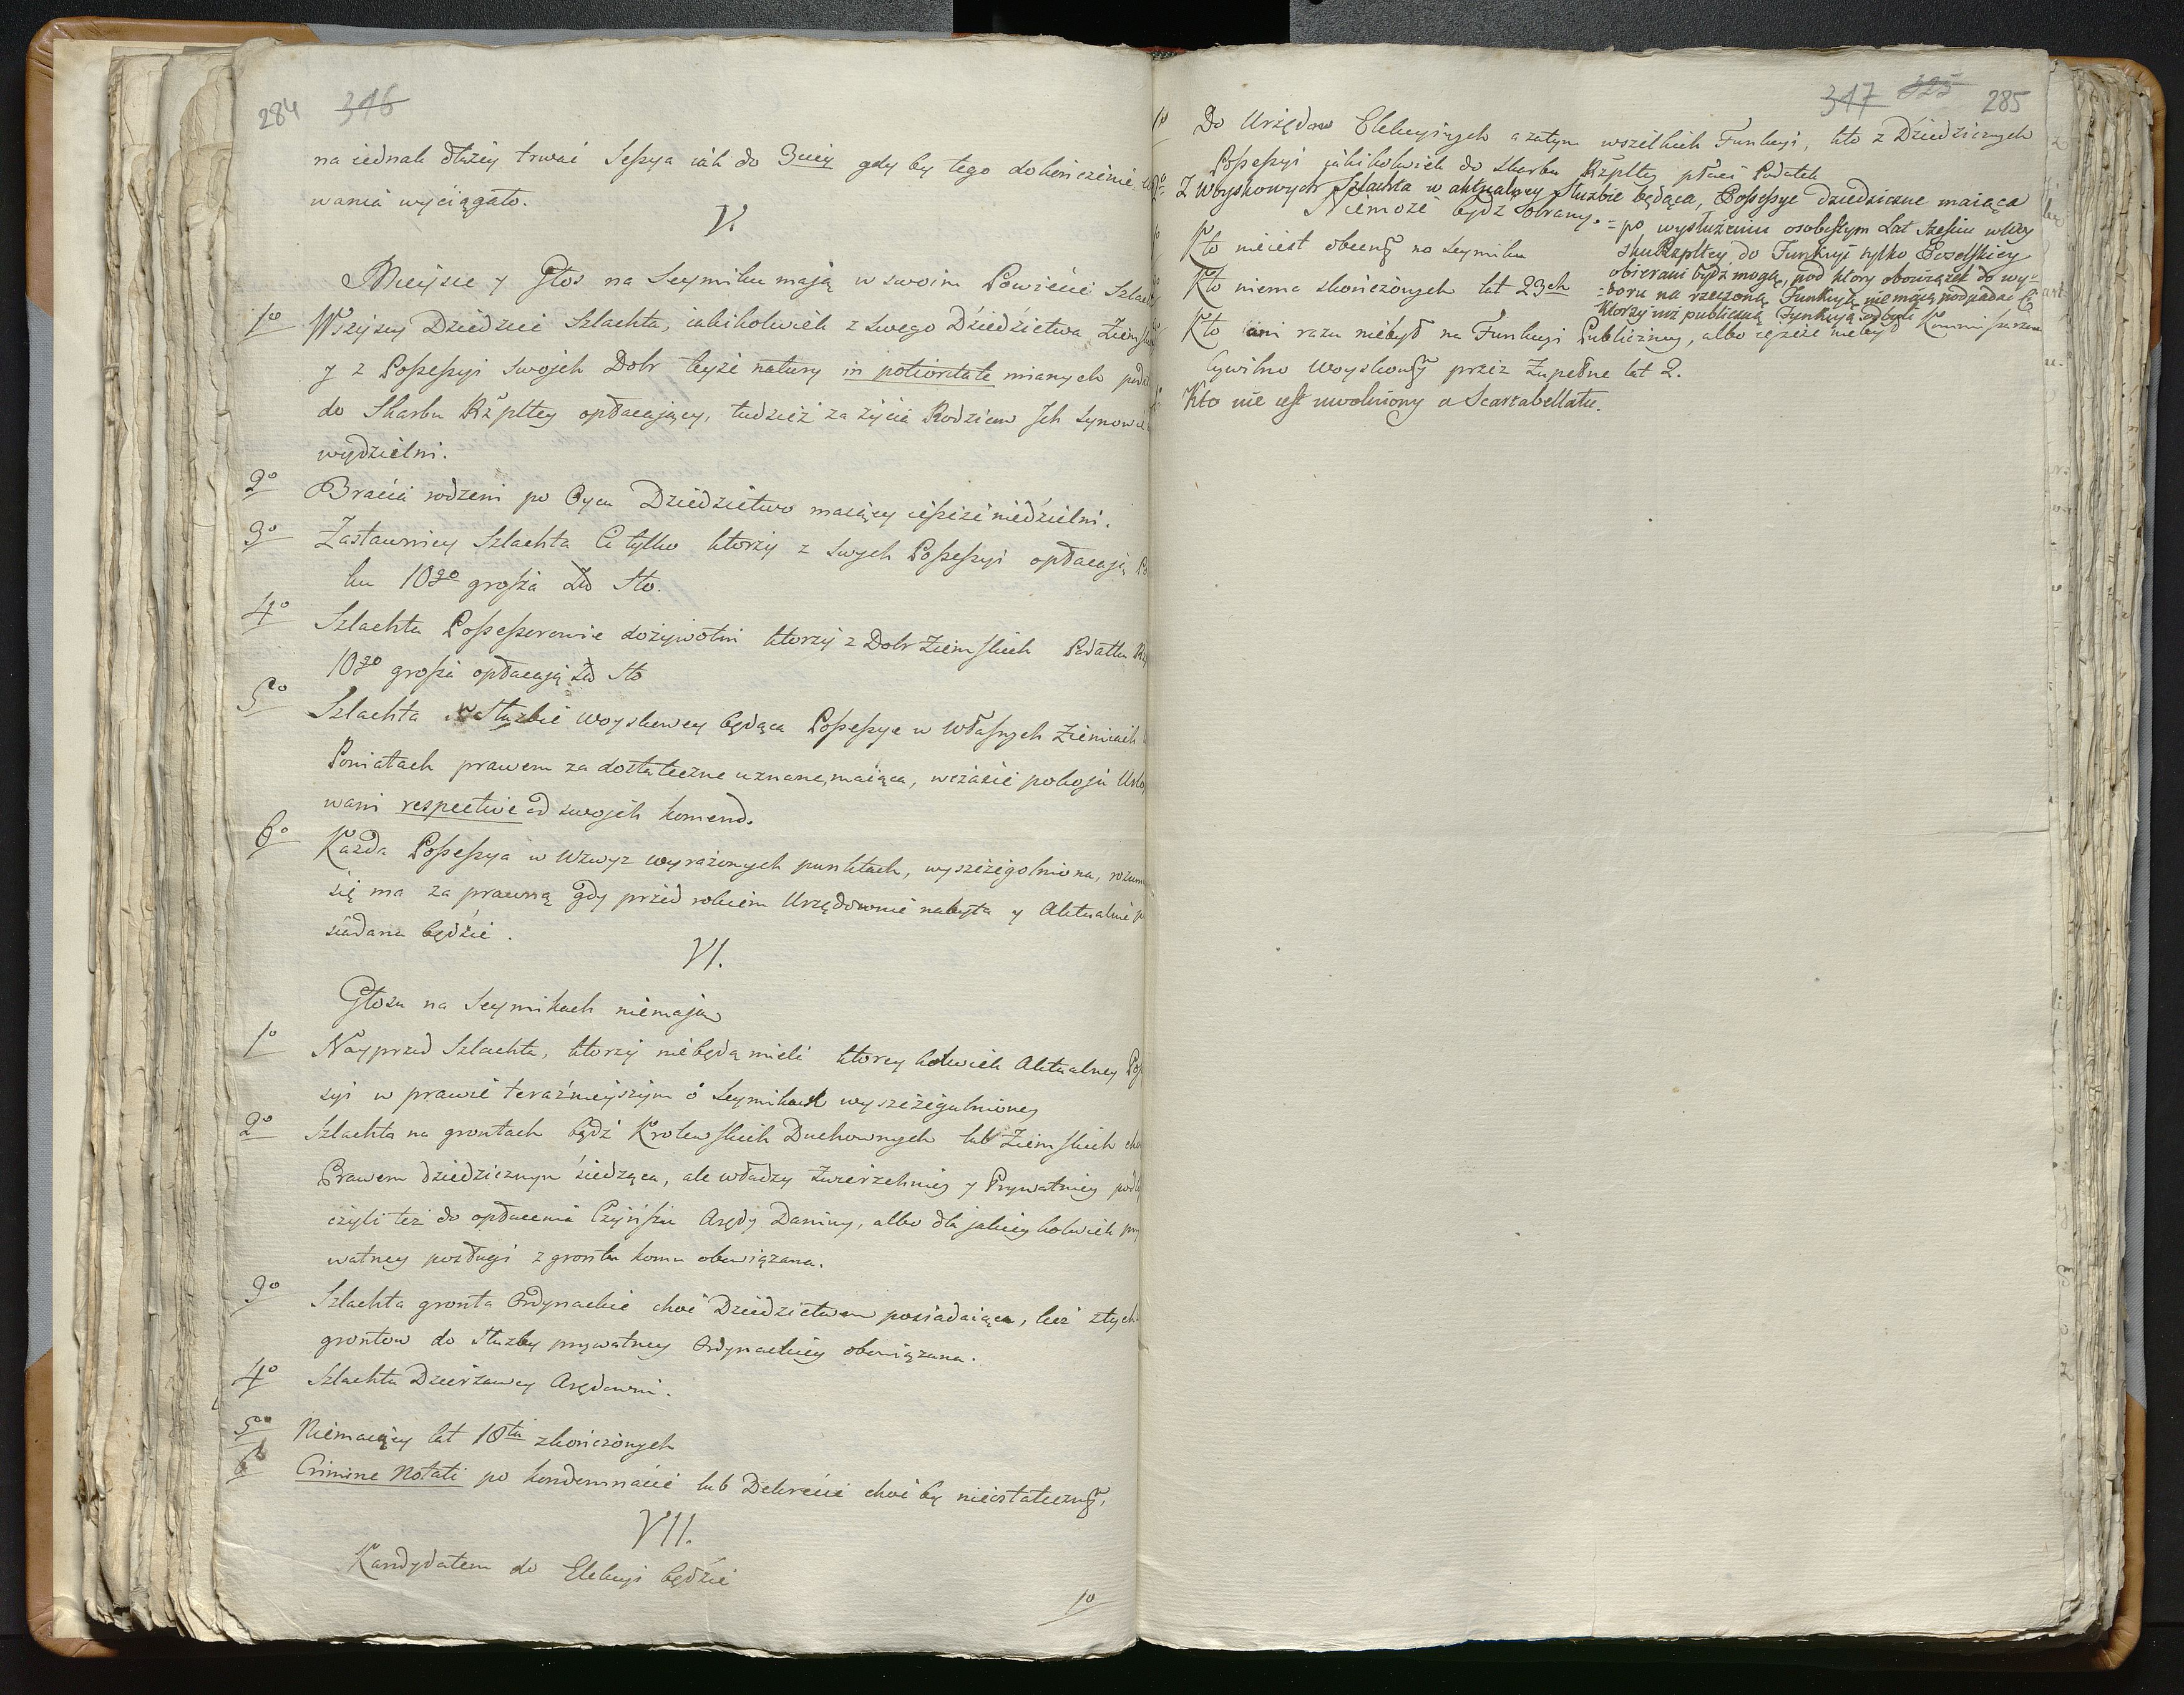 284 316
na iednak dłużey trwać Sessya iak do 3ciey gdy by tego dokończenie
wania wyciągało.
V.
Mieysce y Głos na Seymiku mają w swoim Powiecie
1o Wszyscy Dziedzice Szlachta, iakikolwiek z swego Dziedzictwa
y z Possessyi swojch Dobr teyże natury in potioritate mianych
do Skarbu Rzpltey opłacający, tudzież za życia Rodzicow Jch Synowie
wydzielni.
2o Bracia rodzeni po Oycu Dziedzictwo maiący ieszcze niedzielni.
3o Zastawnicy Szlachta Ci tylko ktorzy z swych Possessyi opłacają
ku 10go grosza Zło Sto.
4o Szlachta Possessorowie dożywotni ktorzy z Dobr Ziemskich Podatku
10go grosza opłacają Zło Sto
5o Szlachta w Służbie woyskowey będąca Possessye w Własnych Ziemiach
Powiatach prawem za dostateczne uznane, maiąca, w czasie pokoju
wani respective od swojch komend.
6o Każda Possessya w wzwyz wyrażonych punktach, wyszczegolniona,
się ma za prawną gdy przed rokiem Urzędownie nabyta y Aktualnie
siadana będzie.
VI.
Głosu na Seymikach niemają
1o Nayprzod Szlachta, ktorzy niebędą mieli ktorey kolwiek Aktualney
syi w prawie teraźnieyszym o Seymikach wyszczegulnioney
2o Szlachta na grontach bądź Krolewskich Duchownych lub Ziemskich
Prawem dziedzicznym siedząca, ale władzy Zwierzchniey y Prywatney
czyli też do opłacenia Czynszu Arędy Daniny, albo dla jakiey kolwiek
watney posługi z grontu komu obowiązana.
3o Szlachta gronta Ordynackie choć Dziedzictwem posiadaiąca, lecz z tych
grontow do Służby prywatney Ordynackiey obowiązana.
4o Szlachta Dzierżawcy Arędowni.
5o Niemaiący lat 18tu skończonych
6o Crimine Notati po kondemnacie lub Dekrecie choć by nieostatecznym
VII.
Kandydatem do Elekcyi będzie
1o
317 325 285
1o Do Urzędow Elekcyinych a zatym wszelkich Funkcyi, kto z Dziedzicznych
Possessyi iakikolwiek do Skarbu Rzpltey płaci Podatek
2o Z Woyskowych Szlachta w aktualney Służbie będąca, Possessye dziedziczne maiąca
Niemoże bydz obrany. = po wysłużeniu osobistym Lat Sześciu w Woy
sku Rzpltey do Funkcyi tylko Poselskiey
obierani bydź mogą, pod ktory obowiązek do wy-
-boru na rzeczoną Funkcyą nie maią podpadać Ci
Ktorzy iuż publiczną Funkcyą odbyli
Kto nieiest obecny na Seymiku
Kto niema skończonych lat 23ch
Kto ani razu niebył na Funkcyi Publiczney, albo iężeże niebył Kommissarzem
Cywilno Woyskowym przez Zupełne lat 2.
Kto nie iest uwolniony a Scartabellatu.